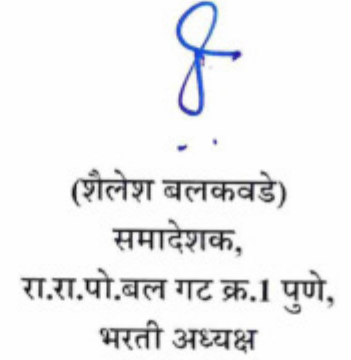 (शैलेश बलकवडे)
समादेशक,
रा.रा.पो.बल गट क्र.1 पुणे,
भरती अध्यक्ष